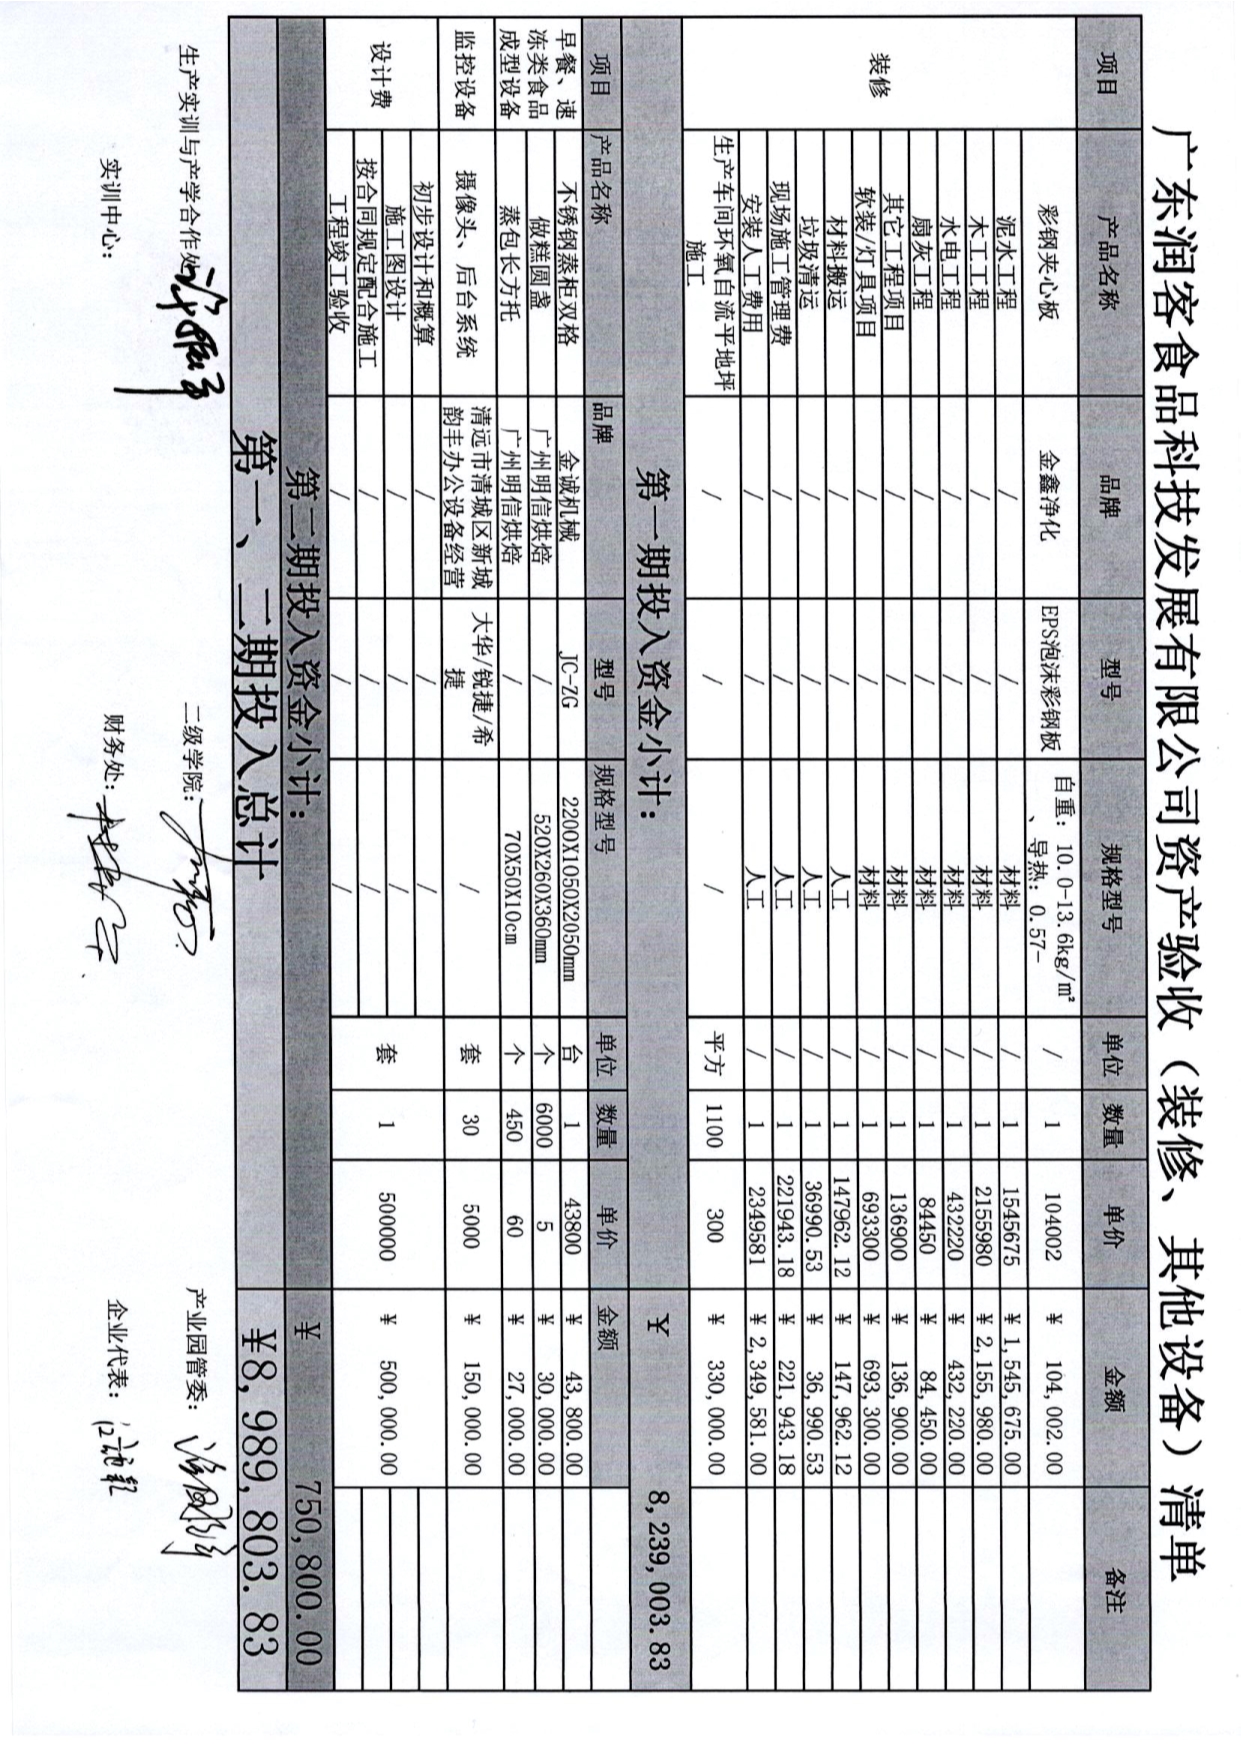 广东润客食品科技发展有限公司资产验收（装修、其他设备）清单
项目 产品名称 品牌 型号 规格型号 单位 数量 单价 金额 备注
装修
彩钢夹心板 金鑫净化 EPS泡沫彩钢板 自重：10.0-13.6kg/m² / 1 104002 ¥ 104,002.00
、导热：0.57-
泥水工程 / / 材料 / 1 1545675 ¥ 1,545,675.00
木工工程 / / 材料 / 1 2155980 ¥ 2,155,980.00
水电工程 / / 材料 / 1 432220 ¥ 432,220.00
扇灰工程 / / 材料 / 1 84450 ¥ 84,450.00
其它工程项目 / / 材料 / 1 136900 ¥ 136,900.00
软装/灯具项目 / / 材料 / 1 693300 ¥ 693,300.00
材料搬运 / / 人工 / 1 147962.12 ¥ 147,962.12
垃圾清运 / / 人工 / 1 36990.53 ¥ 36,990.53
现场施工管理费 / / 人工 / 1 221943.18 ¥ 221,943.18
安装人工费用 / / 人工 / 1 2349581 ¥ 2,349,581.00
生产车间环氧自流平地坪 / / / 平方 1100 300 ¥ 330,000.00
施工
第一期投入资金小计： ¥ 8,239,003.83
项目 产品名称 品牌 型号 规格型号 单位 数量 单价 金额
早餐、速
冻类食品
成型设备
不锈钢蒸柜双格 金诚机械 JC-ZG 2200X1050X2050mm 台 1 43800 ¥ 43,800.00
做糕圆盏 广州明信烘焙 / 520X260X360mm 个 6000 5 ¥ 30,000.00
蒸包长方托 广州明信烘焙 / 70X50X10cm 个 450 60 ¥ 27,000.00
监控设备 摄像头、后台系统 清远市清城区新城 大华/锐捷/希 / 套 30 5000 ¥ 150,000.00
韵丰办公设备经营 捷
设计费
初步设计和概算 / / /
施工图设计 / / / 套 1 500000 ¥ 500,000.00
按合同规定配合施工 / / /
工程竣工验收 / / /
第二期投入资金小计： ¥ 750,800.00
第一、二期投入总计 ¥8,989,803.83
生产实训与产学合作处： 二级学院： 产业园管委：
实训中心： 财务处： 企业代表：